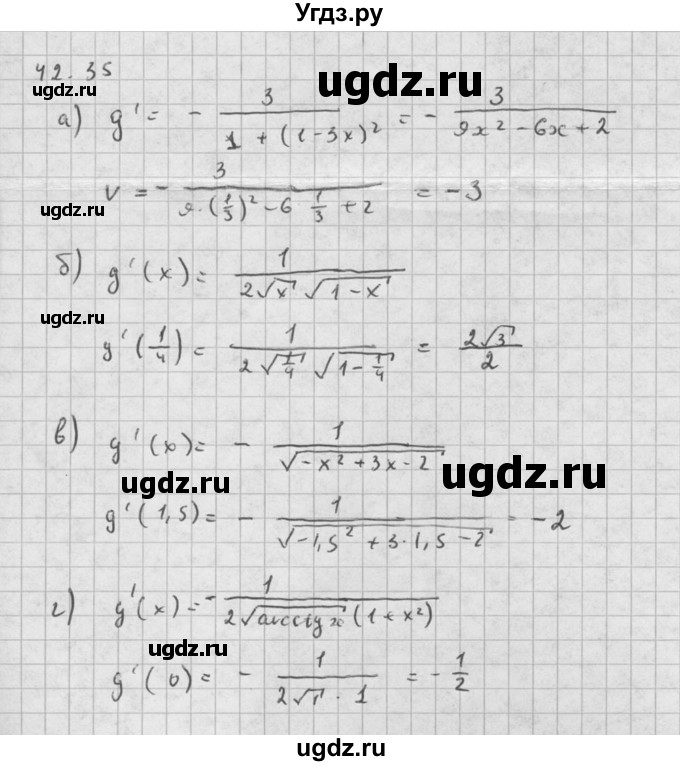 Угдз.ру
42.35
ugdz.ru
а) g' = - 3 / (1 + (1-3x)²) = - 3 / (9x² - 6x + 2)
ugdz.ru
v = - 3 / (9·(1/3)² - 6 1/3 + 2) = -3
ugdz.ru
б) g'(x) = 1 / (2√x √(1-x))
ugdz.ru
ugdz.ru
g'(1/4) = 1 / (2√(1/4) √(1-1/4)) = 2√3 / 2
в) g'(x) = - 1 / √(-x² + 3x - 2)
ugdz.ru
ugdz.ru
g'(1,5) = - 1 / √(-1,5² + 3·1,5 - 2) = -2
г) g'(x) = - 1 / (2√(arcctg x) (1 + x²))
ugdz.ru
ugdz.ru
g'(0) = - 1 / (2√1 · 1) = - 1/2
ugdz.ru